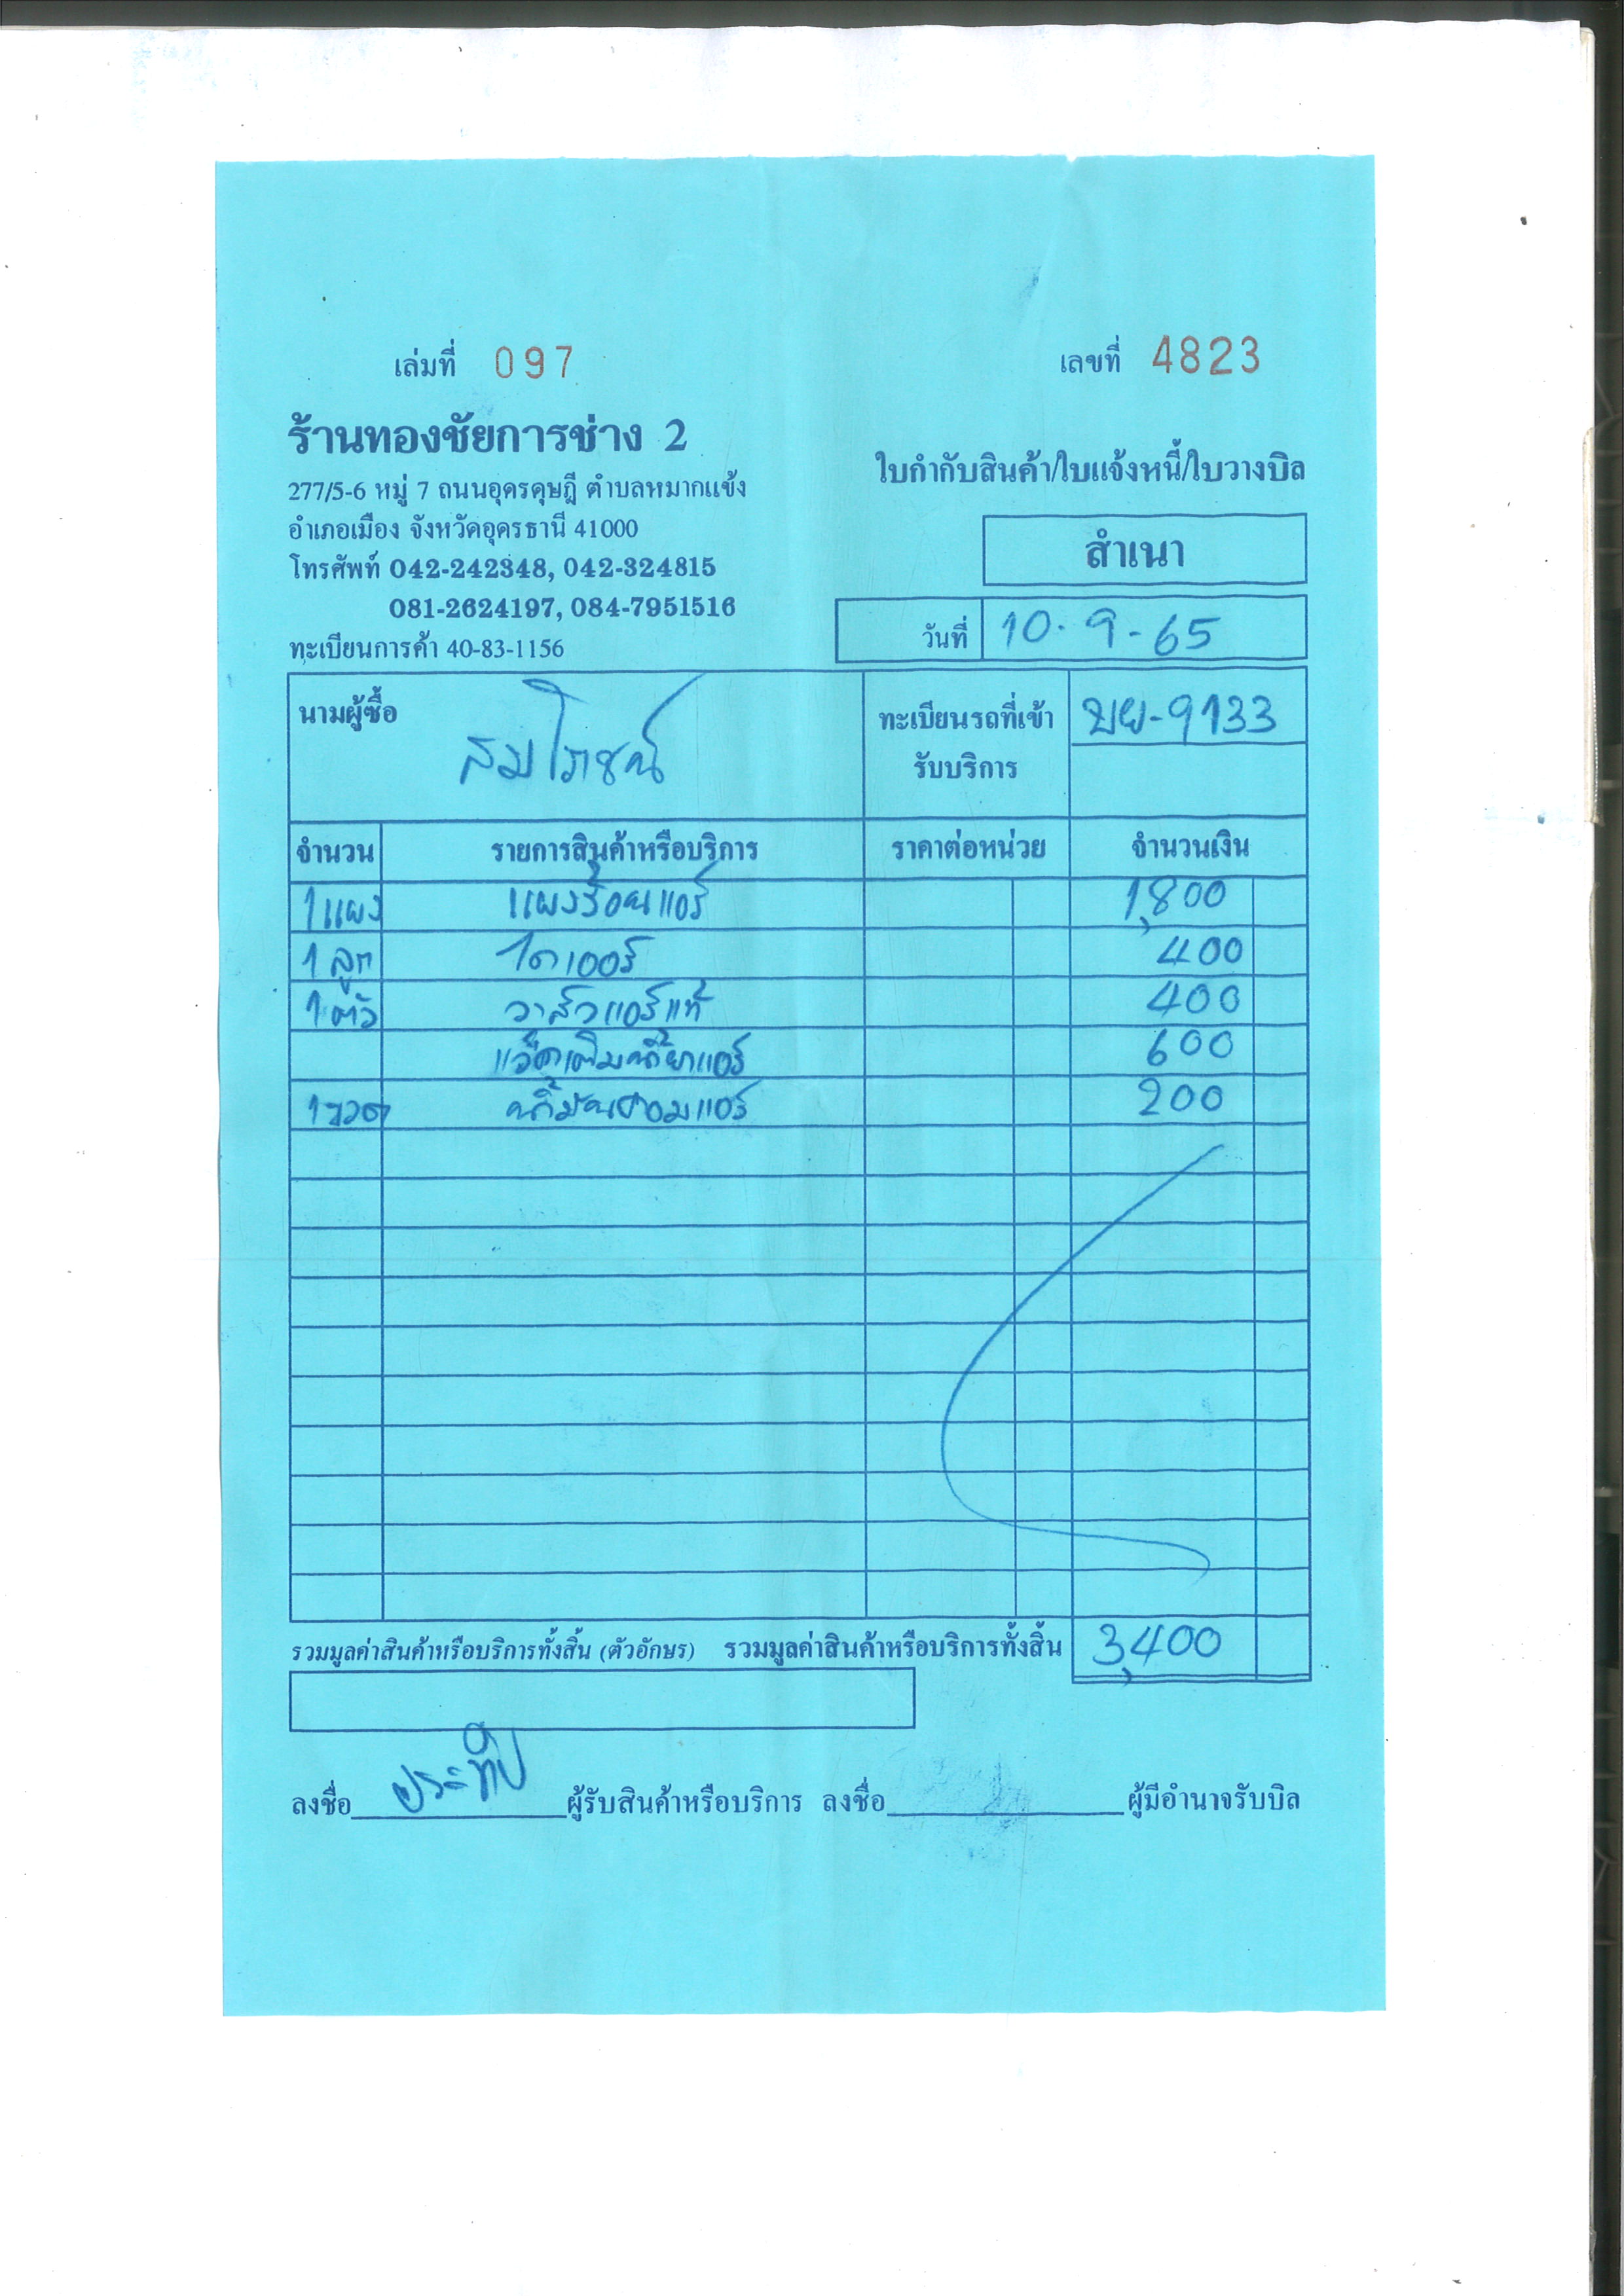 เล่มที่ 097
เลขที่ 4823
ร้านทองชัยการช่าง 2
277/5-6 หมู่ 7 ถนนอุดรดุษฎี ตำบลหมากแข้ง
อำเภอเมือง จังหวัดอุดรธานี 41000
โทรศัพท์ 042-242348, 042-324815
081-2624197, 084-7951516
ทะเบียนการค้า 40-83-1156
ใบกำกับสินค้า/ใบแจ้งหนี้/ใบวางบิล
สำเนา
วันที่ 10-9-65
นามผู้ซื้อ สมโภชน์
ทะเบียนรถที่เข้า
รับบริการ
9133
จำนวน รายการสินค้าหรือบริการ ราคาต่อหน่วย จำนวนเงิน
1 แผง แผงร้อนแอร์ 1,800
1 ลูก ไดเออร์ 400
1 ตัว วาล์วแอร์แท้ 400
แว๊คเติมน้ำยาแอร์ 600
1 ขวด น้ำมันคอมแอร์ 200
รวมมูลค่าสินค้าหรือบริการทั้งสิ้น (ตัวอักษร) รวมมูลค่าสินค้าหรือบริการทั้งสิ้น 3,400
ลงชื่อ ประทีป ผู้รับสินค้าหรือบริการ ลงชื่อ ผู้มีอำนาจรับบิล